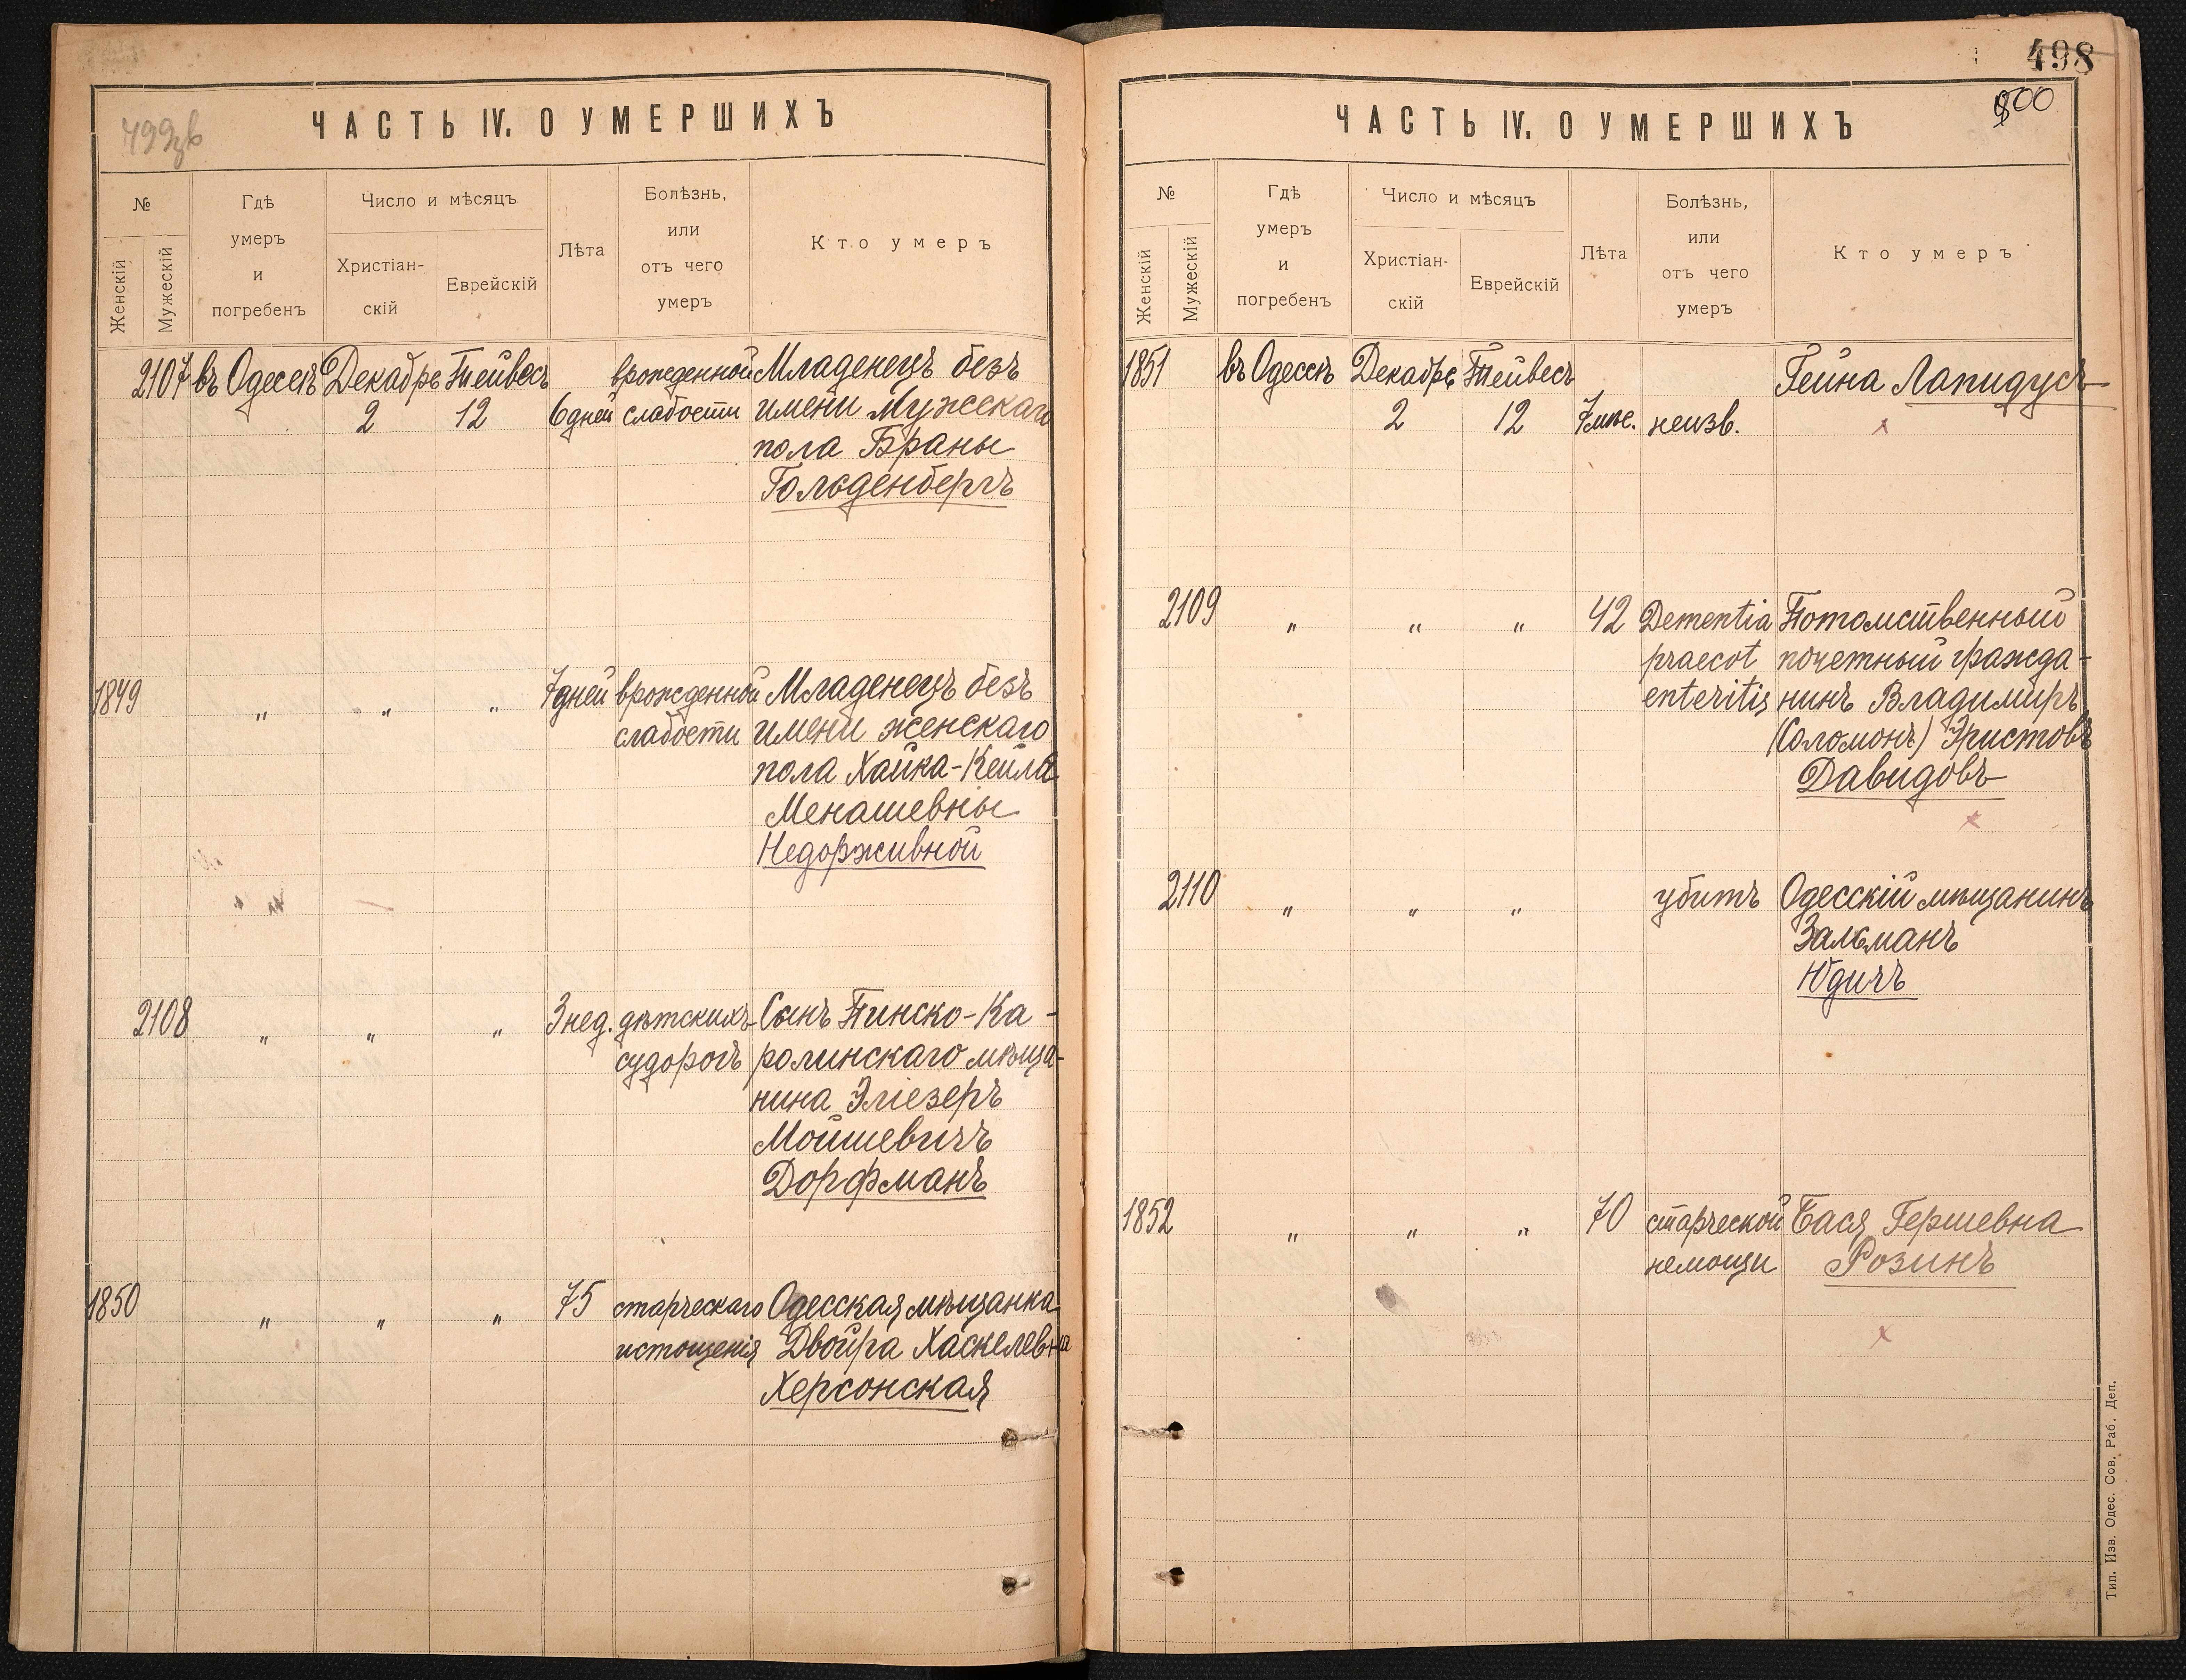 499зв
ЧАСТЬ IV. О УМЕРШИХЪ
№
Женскій
Мужескій
Гдѣ
умеръ
и
погребенъ
Число и мѣсяцъ
Христіан-
скій
Еврейскій
Лѣта
Болѣзнь,
или
отъ чего
умеръ
Кто умеръ
2107 въ Одессѣ Декабрь Тейвесъ врожденной Младенецъ безъ
2 12 6 дней слабости имени Мужскаго
пола Браны
Гольденбергъ
1849 " " " 7 дней врожденной Младенецъ безъ
слабости имени женскаго
пола Хайка-Кейла
Менашевны
Недорживной
2108 " " " 3 нед. дѣтскихъ Сынъ Пинско-Ка-
судорогъ ролинскаго мѣща-
нина Эліезеръ
Мойшевичъ
Дорфманъ
1850 " " " 75 старческаго Одесская мѣщанка
истощенія Двойра Хаскелевна
Херсонская
498
500
ЧАСТЬ IV. О УМЕРШИХЪ
№
Женскій
Мужескій
Гдѣ
умеръ
и
погребенъ
Число и мѣсяцъ
Христіан-
скій
Еврейскій
Лѣта
Болѣзнь,
или
отъ чего
умеръ
Кто умеръ
1851 въ Одессѣ Декабрь Тейвесъ Гейна Лапидусъ
2 12 7 мѣс. неизв.
2109 " " " 42 Dementia Потомственный
praecot почетный гражда-
enteritis нинъ Владимиръ
(Соломонъ) Эристовъ
Давидовъ
2110 " " " убитъ Одесскій мѣщанинъ
Зальманъ
Юдичъ
1852 " " " 70 старческой Бася Гершевна
немощи Розинъ
Тип. Изв. Одес. Сов. Раб. Деп.